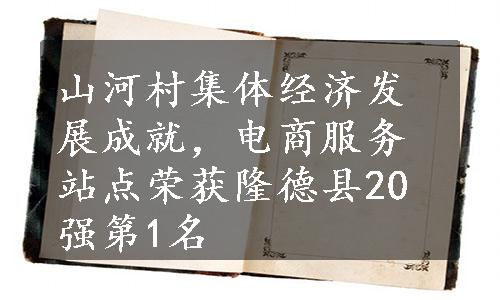 山河村集体经济发
展成就，电商服务
站点荣获隆德县20
强第1名